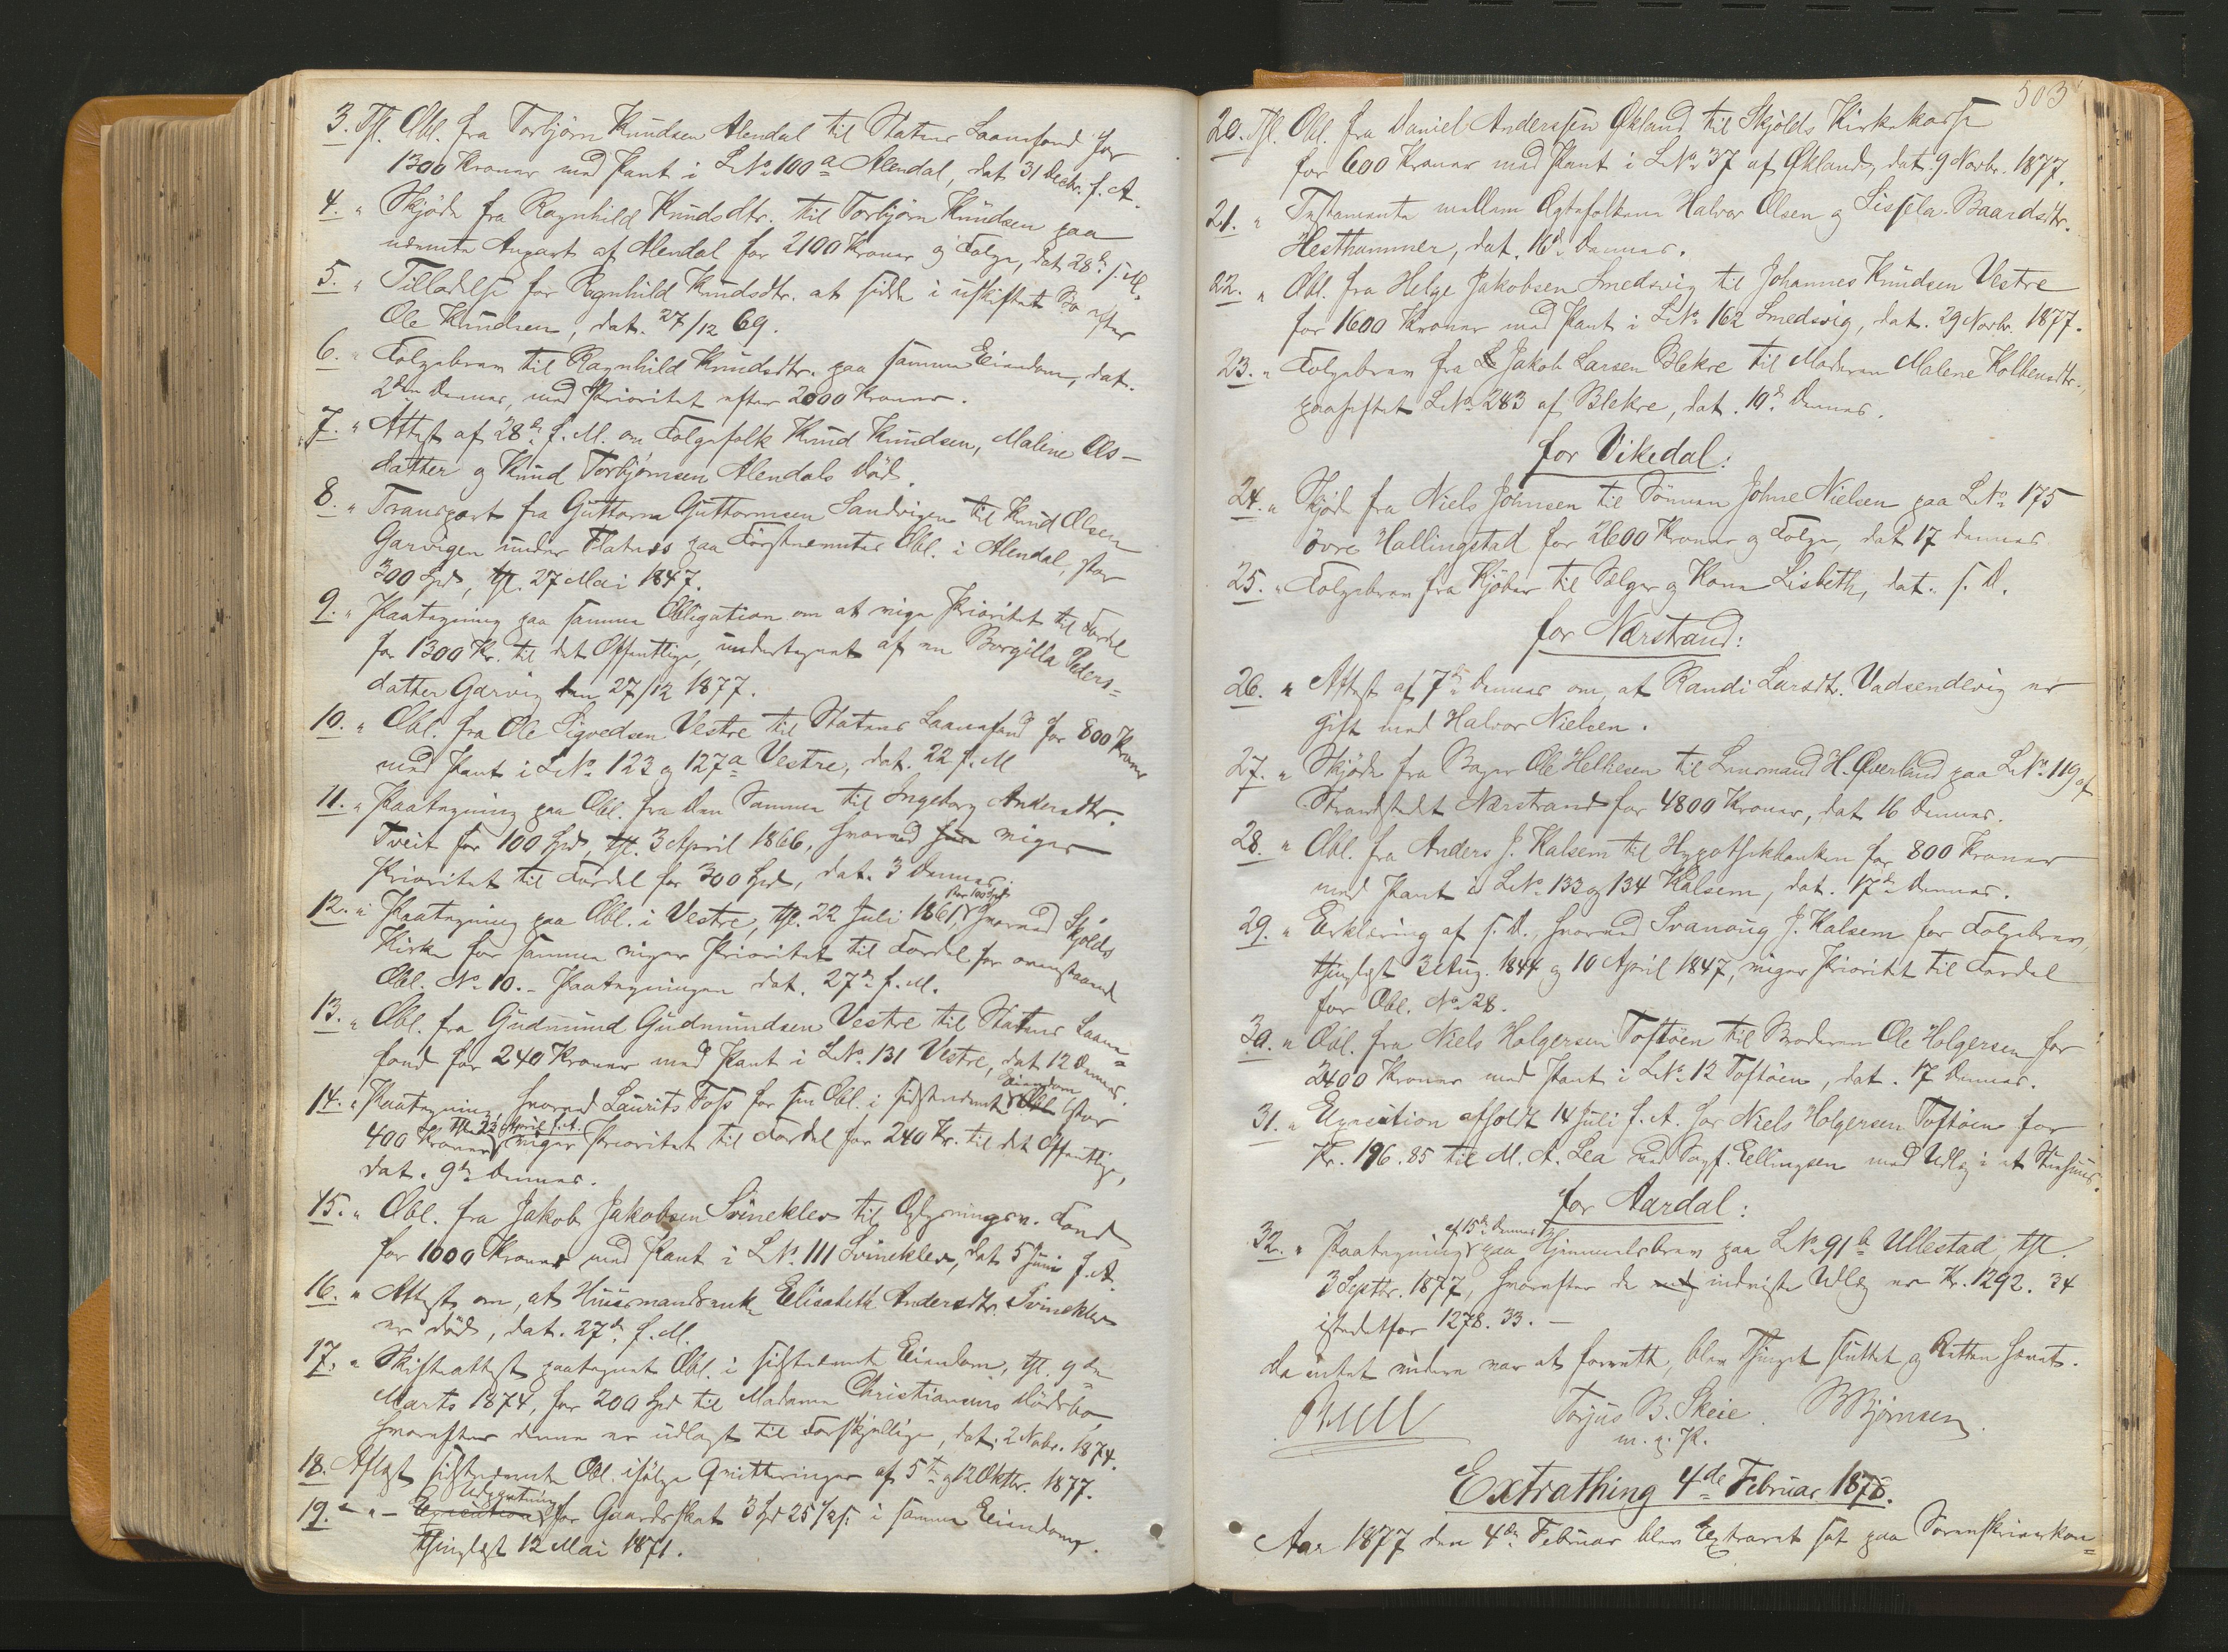 3. Tgl. Obl. fra Torbjørn Knudsen Alendal til Statens Laanefond for
1300 Kroner med Pant i L.No 100a Alendal, dat 31 Decbr. f. A.
4. " Skjøde fra Ragnhild Knudsdtr. til Torbjørn Knudsen paa
nævnte Anpart af Alendal for 2100 Kroner og Folge, dat 28de f. M.
5. " Tilladelse for Ragnhild Knudsdtr. at sidde i uskiftet Bo efter
Ole Knudsen, dat. 27/12 69.
6. " Folgebrev til Ragnhild Knudsdtr. paa samme Eiendom, dat.
2den dennes, med Prioritet efter 2000 Kroner.
7. " Attest af 28de f. M. om Folgefolk Knud Knudsen, Malene Ols-
datter og Knud Torbjørnsen Alendals Død.
8. " Transport fra Guttorm Guttormsen Sandvigen til Knud Olsen
Garvigen under Flatnæs paa Førstnævntes Obl. i Alendal, stor
300 Spd, tgl. 27 Mai 1847.
9. " Paategning paa samme Obligation om at vige Prioritet til Fordel
for 1300 Kr. til det Offentlige, undertegnet af en Borgilla Peders=
datter Garvig den 27/12 1877.
10. " Obl. fra Ole Sigvedsen Vestre til Statens Laanefond for 800 Kroner
med Pant i L.No 123 og 127a Vestre, dat. 22 f. M
11. " Paategning paa Obl. fra den Samme til Ingeborg Andersdtr.
Tveit for 100 Spd, tgl. 3 April 1866, hvorved hun viger
Prioritet til Fordel for 300 Spd, dat. 3 dennes.
12. " Paategning paa Obl. i Vestre, tgl. 22 Juli 1861, stor 100 Spd hvorved Skjolds
Kirke for samme viger Prioritet til Fordel for ovenstaaende
Obl. No 10. - Paategningen dat. 27de f. M.
13. " Obl. fra Gudmund Gudmundsen Vestre til Statens Laane=
fond for 240 Kroner med Pant i L.No. 131 Vestre, dat 12 dennes.
14. " Paategning, hvorved Laurits Foss for sin Obl. i sidstnævnte Eiendom Obl (stor
400 Kroner, tgl. 23 April f. A. viger Prioritet til Fordel for 240 Kr. til det Offentlige,
dat. 9de dennes.
15. " Obl. fra Jakob Jakobsen Svineklev til Oplysningsv. Fond
for 1000 Kroner med Pant i L.No. 111 Svineklev, dat 5 Juni f. A.
16. " Attest om, at Huusmandsenke Elisabeth Andersdtr. Svineklev
er død, dat. 27de f. M.
17. " Skifteattest paategnet Obl. i sidstnævnte Eiendom, tgl. 9de
Marts 1874, for 200 Spd til Madame Christiansens Dødsbo,
hvorefter denne er udlagt til Forskjellige, dat. 2 Novbr. 1874.
18. Aflæst sidstnævnte Obl. ifølge Qvitteringer af 5te og 12 Oktbr. 1877.
19. " - Execution Udpantning for Gaardsskat 3 Spd 25 1/2 s: i samme Eiendom,
thinglæst 12 Mai 1871.
503
20. Tgl. Obl. fra Daniel Anderssen Økland til Skjolds Kirkekasse
for 600 Kroner med Pant i L.No. 37 af Økland, dat. 9 Novbr. 1877.
21. " Testamente mellem Ægtefolkene Halvor Olsen og Sissela Baardsdtr.
Hesthammer, dat. 16de dennes.
22. " Obl. fra Helge Jakobsen Smedsvig til Johannes Knudsen Vestre
for 1600 Kroner med Pant i L.No. 162 Smedsvig, dat. 29 Novbr. 1877.
23. " Folgebrev fra L Jakob Larsen Blekre til Moderen Malene Kolbensdtr.,
paaheftet L.No. 283 af Blekre, dat. 19de dennes.
for Vikedal:
24. " Skjøde fra Niels Johnsen til Sønnen Johne Nielsen paa L.No. 175
øvre Hallingstad for 2600 Kroner og Folge, dat 17 dennes.
25. " Folgebrev fra Kjøber til Sælger og Kone Lisbeth, dat. s. D.
for Nærstrand:
26. " Attest af 7de dennes om, at Randi Larsdtr. Vadsendevig er
gift med Halvor Nielsen.
27. " Skjøde fra Bager Ole Helliesen til Lensmand H. Qverland paa L.No. 119 af
Strandstedet Nærstrand for 4800 Kroner, dat 16 dennes.
28. " Obl. fra Anders J. Kalsem til Hypothekbanken for 800 Kroner
med Pant i L.No. 133 og 134 Kalsem, dat. 17de dennes.
29. " Erklæring af s. D., hvorved Svanaug J. Kalsem for Folgebrev,
thinglæst 3 Aug. 1844 og 10 April 1847, viger Prioritet til Fordel
for Obl. No. 28.
30. " Obl. fra Niels Holgersen Toftøen til Broderen Ole Holgersen for
2400 Kroner med Pant i L.No. 12 Toftøen, dat. 17 dennes.
31. " Execution afholdt 14 Juli f. A. hos Niels Holgersen Toftøen for
Kr. 196.85 til M. A. Lea ved Sagf. Ellingsen med Udlæg i et Stuehuus.
for Aardal:
32. " Paategning af 15de dennes paa Hjemmelsbrev paa L.No. 91b Ullestad, tgl.
3 Septbr. 1877, hvorefter de indviste Udlæg er Kr. 1292.34
istedetfor 1278.33. -
Da intet videre var at forrette, blev Thinget sluttet og Retten hævet.
Torjus B. Skeie. Bjørnsen
m. p. P.
Extrathing 4de Februar 1878.
Aar 1877 den 4de Februar blev Extraret sat paa Sorenskriverkon=